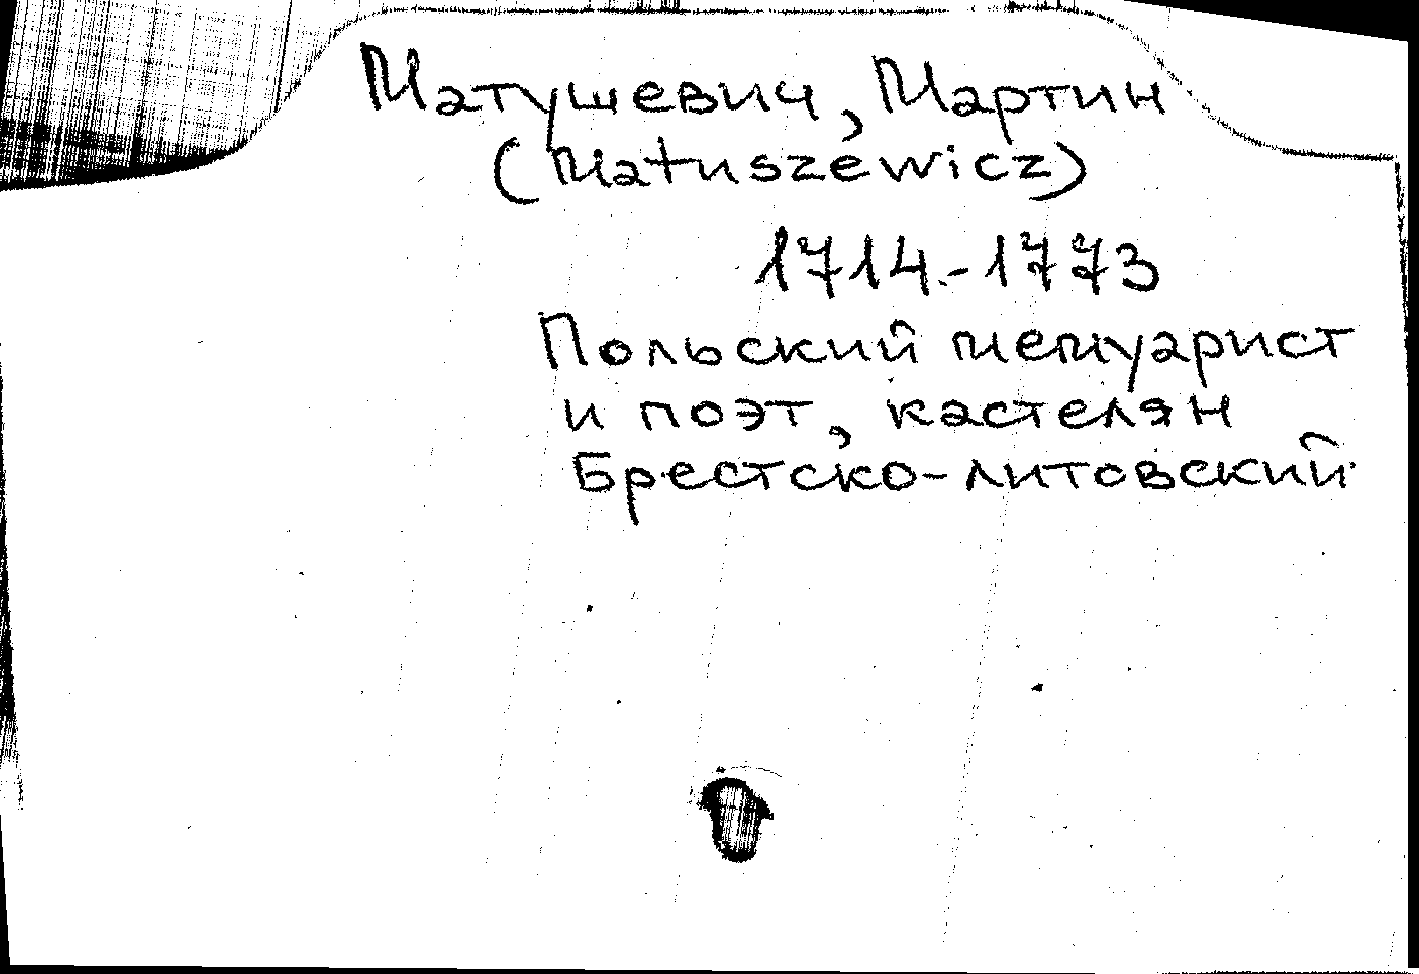 Матушевич, Мартин
(Matuszewicz)
1714.-1773
Польский мемуарист
и поэт, кастелян
Брестско-литовский.